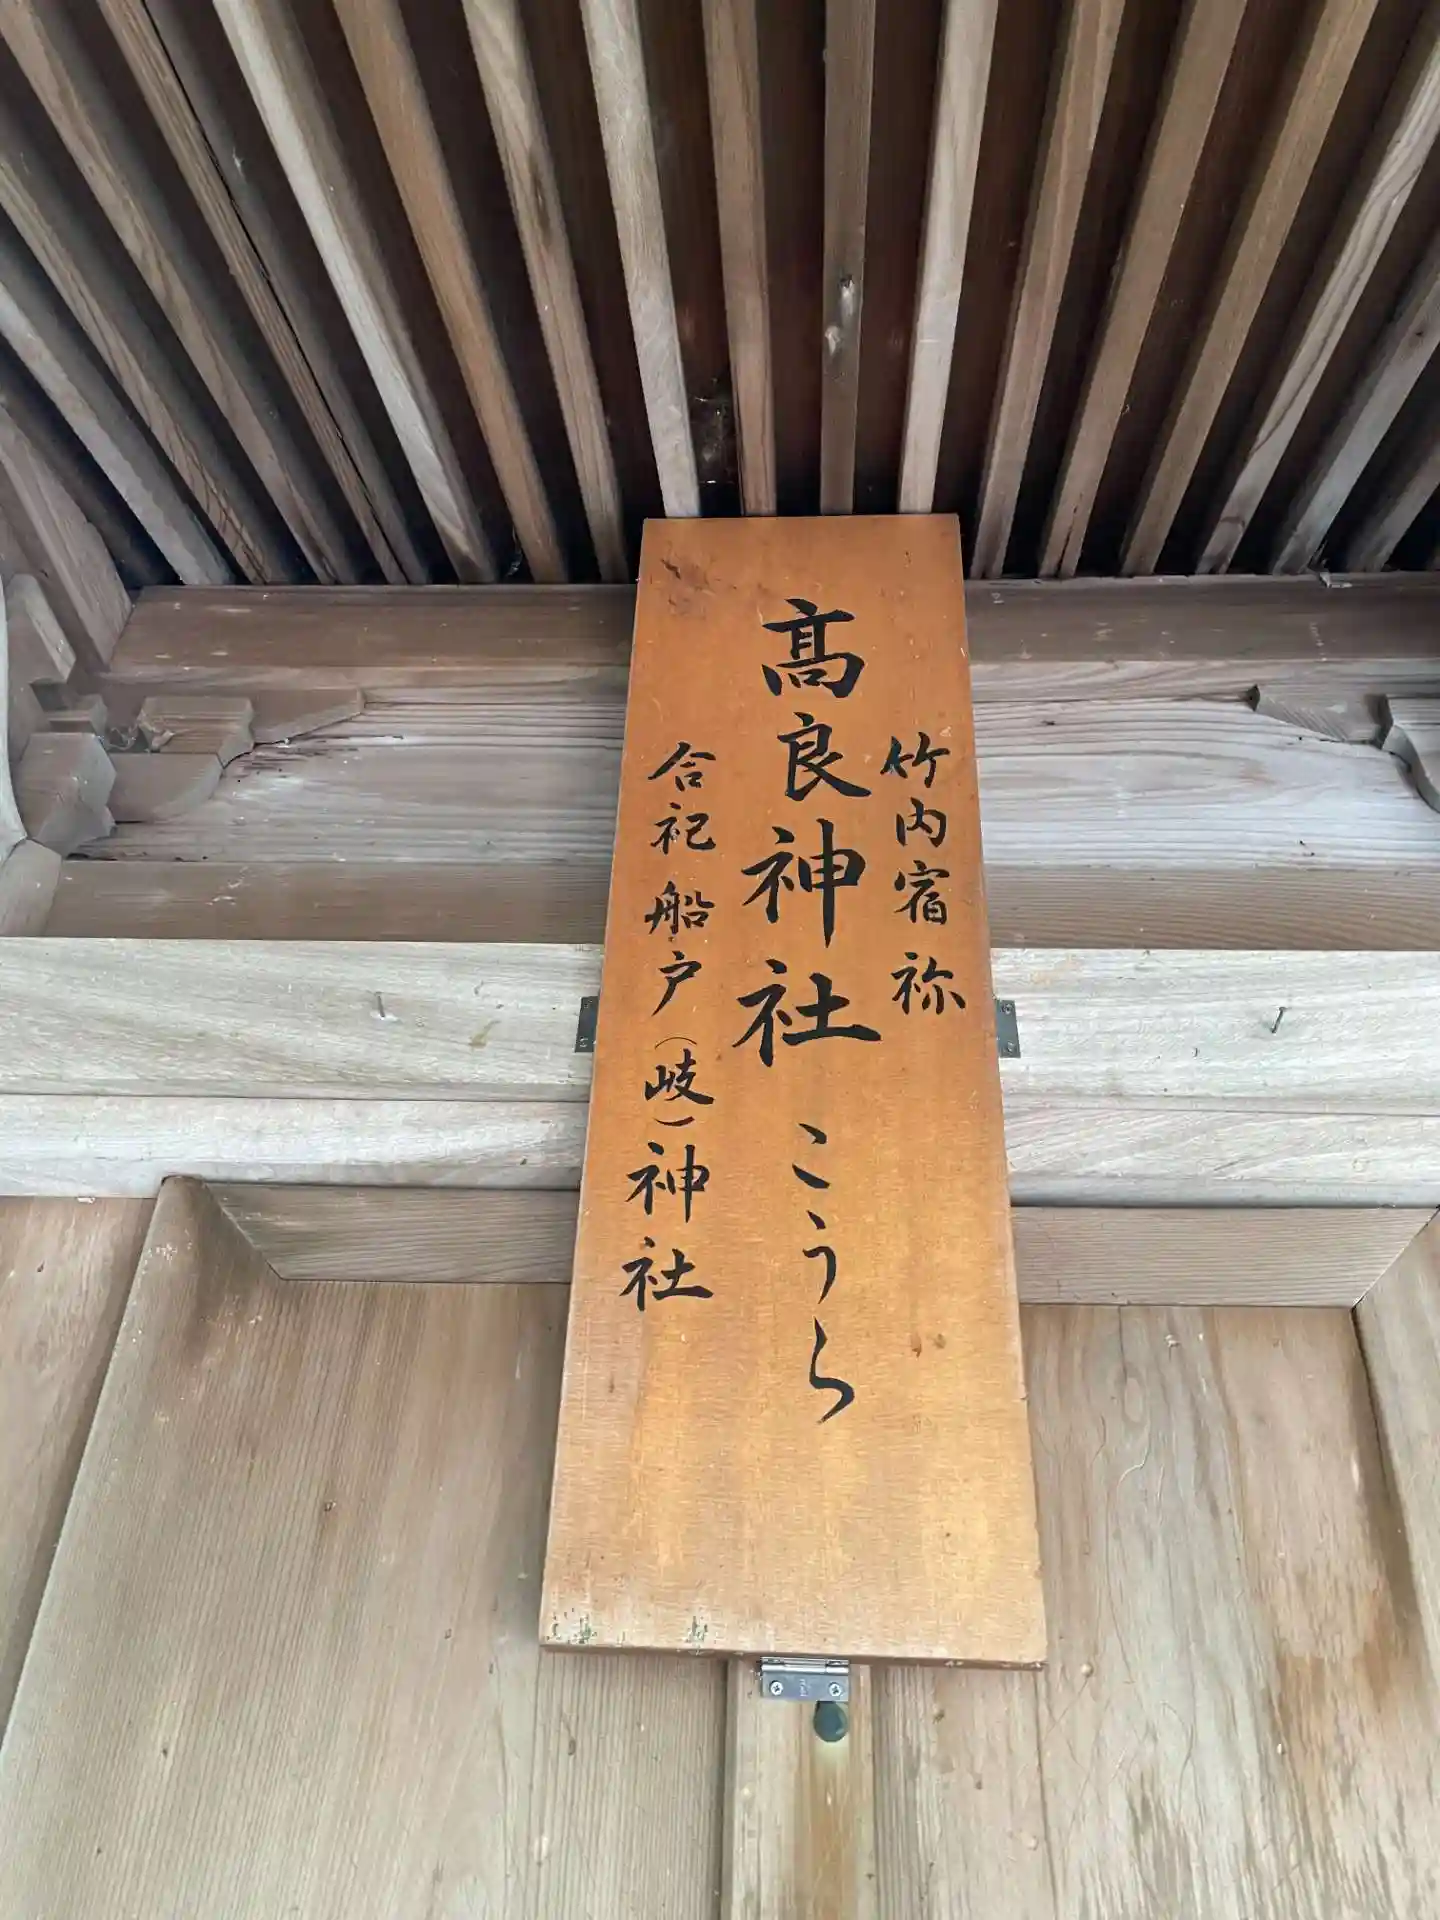 竹内宿祢
髙良神社 こうら
合祀 船戸(岐)神社